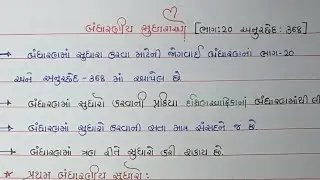 બંધારણીય સુધારાઓ [ભાગ:20 અનુચ્છેદ:368]
→ બંધારણમાં સુધારા કરવા માટેની જોગવાઈ બંધારણના ભાગ-20
અને અનુચ્છેદ-368 માં કરાયેલ છે
→ બંધારણમાં સુધારો કરવાની પ્રક્રિયા દક્ષિણ આફ્રિકાના બંધારણમાંથી લી
→ બંધારણમાં સુધારો કરવાની સત્તા માત્ર સંસદને જ છે.
→ બંધારણમાં ત્રણ રીતે સુધારો કરી શકાય છે.
* પ્રથમ બંધારણીય સુધારો: